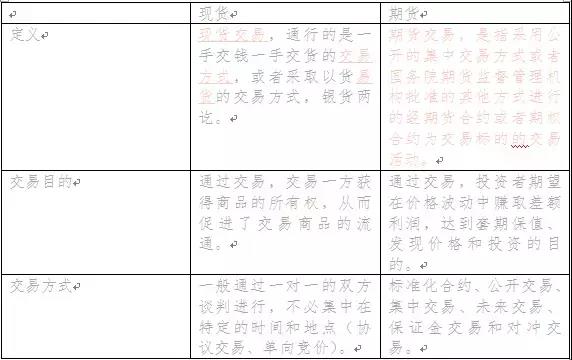 现货
期货
定义
现货交易，通行的是一
手交钱一手交货的交易
方式，或者采取以货易
货的交易方式，银货两
讫。
期货交易，是指采用公
开的集中交易方式或者
国务院期货监督管理机
构批准的其他方式进行
的以期货合约或者期权
合约为交易标的的交易
活动。
交易目的
通过交易，交易一方获
得商品的所有权，从而
促进了交易商品的流
通。
通过交易，投资者期望
在价格波动中赚取差额
利润，达到套期保值、
发现价格和投资的目
的。
交易方式
一般通过一对一的双方
谈判进行，不必集中在
特定的时间和地点（协
议交易、单向竞价）。
标准化合约、公开交易、
集中交易、未来交易、
保证金交易和对冲交
易。